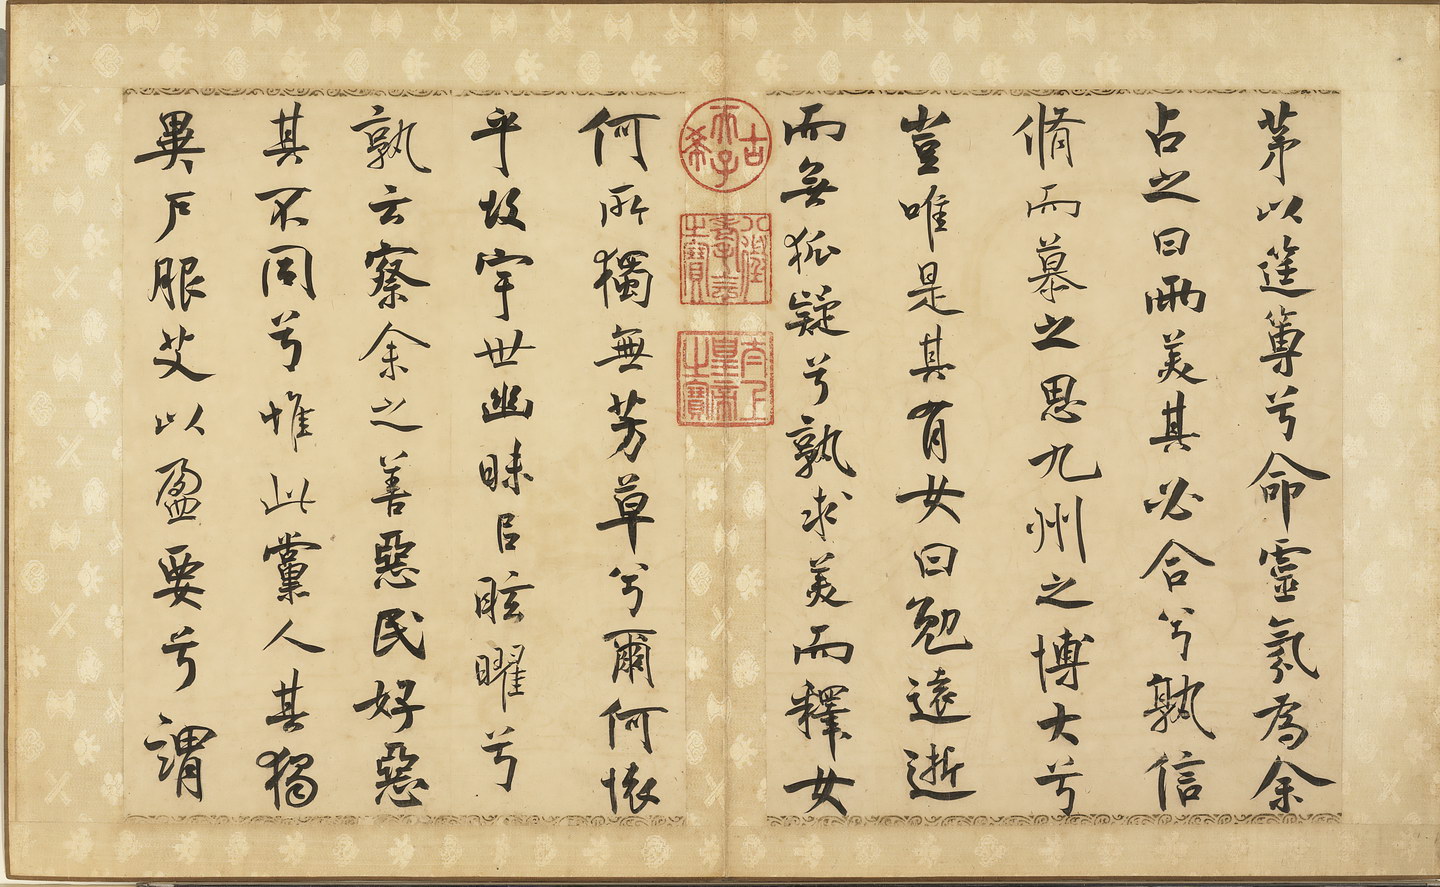 茅以筳篿兮命靈氛為余
占之曰兩美其必合兮孰信
脩而慕之思九州之博大兮
豈唯是其有女曰勉遠逝
而無狐疑兮孰求美而釋女
古希天子
八徵耄念之寶
太上皇帝之寶
何所獨無芳草兮爾何懷
乎故宇世幽昧㠯眩曜兮
孰云察余之善惡民好惡
其不同兮惟此黨人其獨
異戶服艾以盈要兮謂